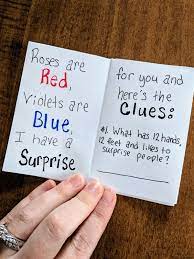 Roses are
Red,
Violets are
Blue,
I have a
Surprise
for you and
here's the
Clues:
#1. What has 12 hands,
12 feet and likes to
surprise people?